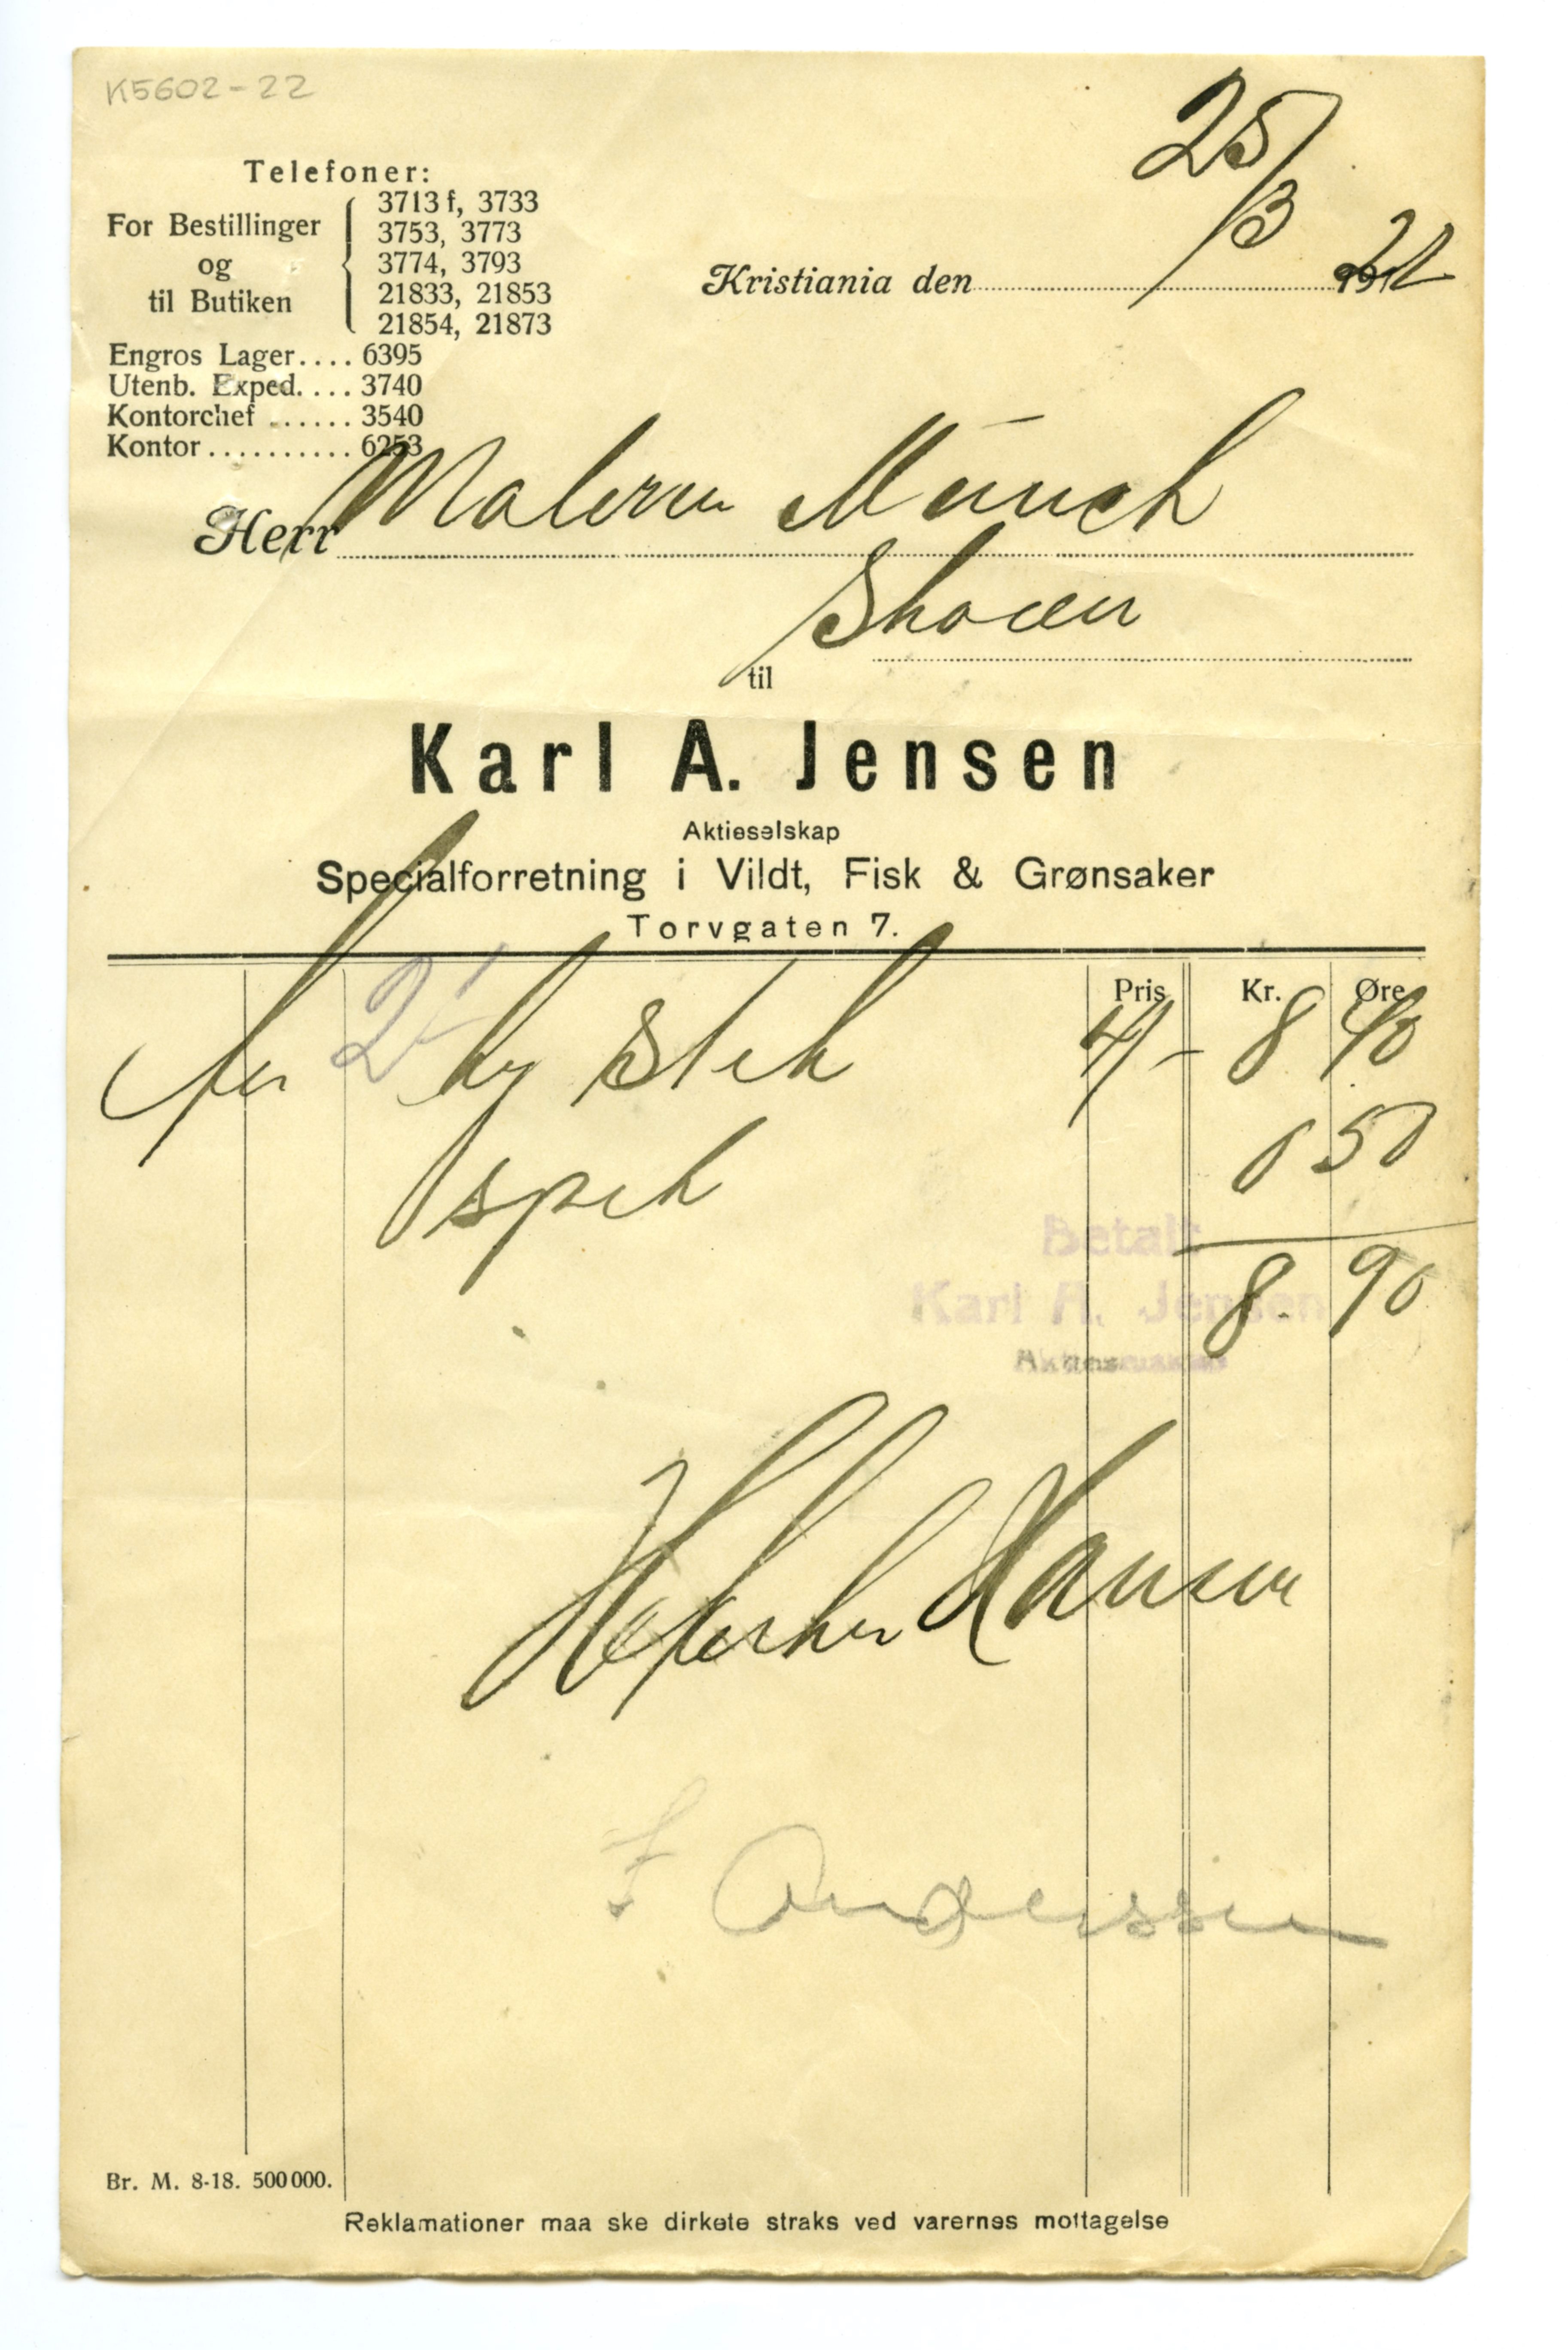 K5602-22
25/3
Telefoner:
For Bestillinger
og
til Butiken
3713 f, 3733
3753, 3773
3774, 3793
21833, 21853
21854, 21873
Engros Lager.... 6395
Utenb. Exped.... 3740
Kontorchef ...... 3540
Kontor .......... 6253
Kristiania den 22
Herr Maleren Munch
Skøien
til
Karl A. Jensen
Aktieselskap
Specialforretning i Vildt, Fisk & Grønsaker
Torvgaten 7.
Pris Kr. Øre
kg Stek 4/- 8 40
spek 0 50
8 90
Betalt
Karl A. Jensen
Hansen
Andersen
Br. M. 8-18. 500000.
Reklamationer maa ske dirkete straks ved varernes mottagelse